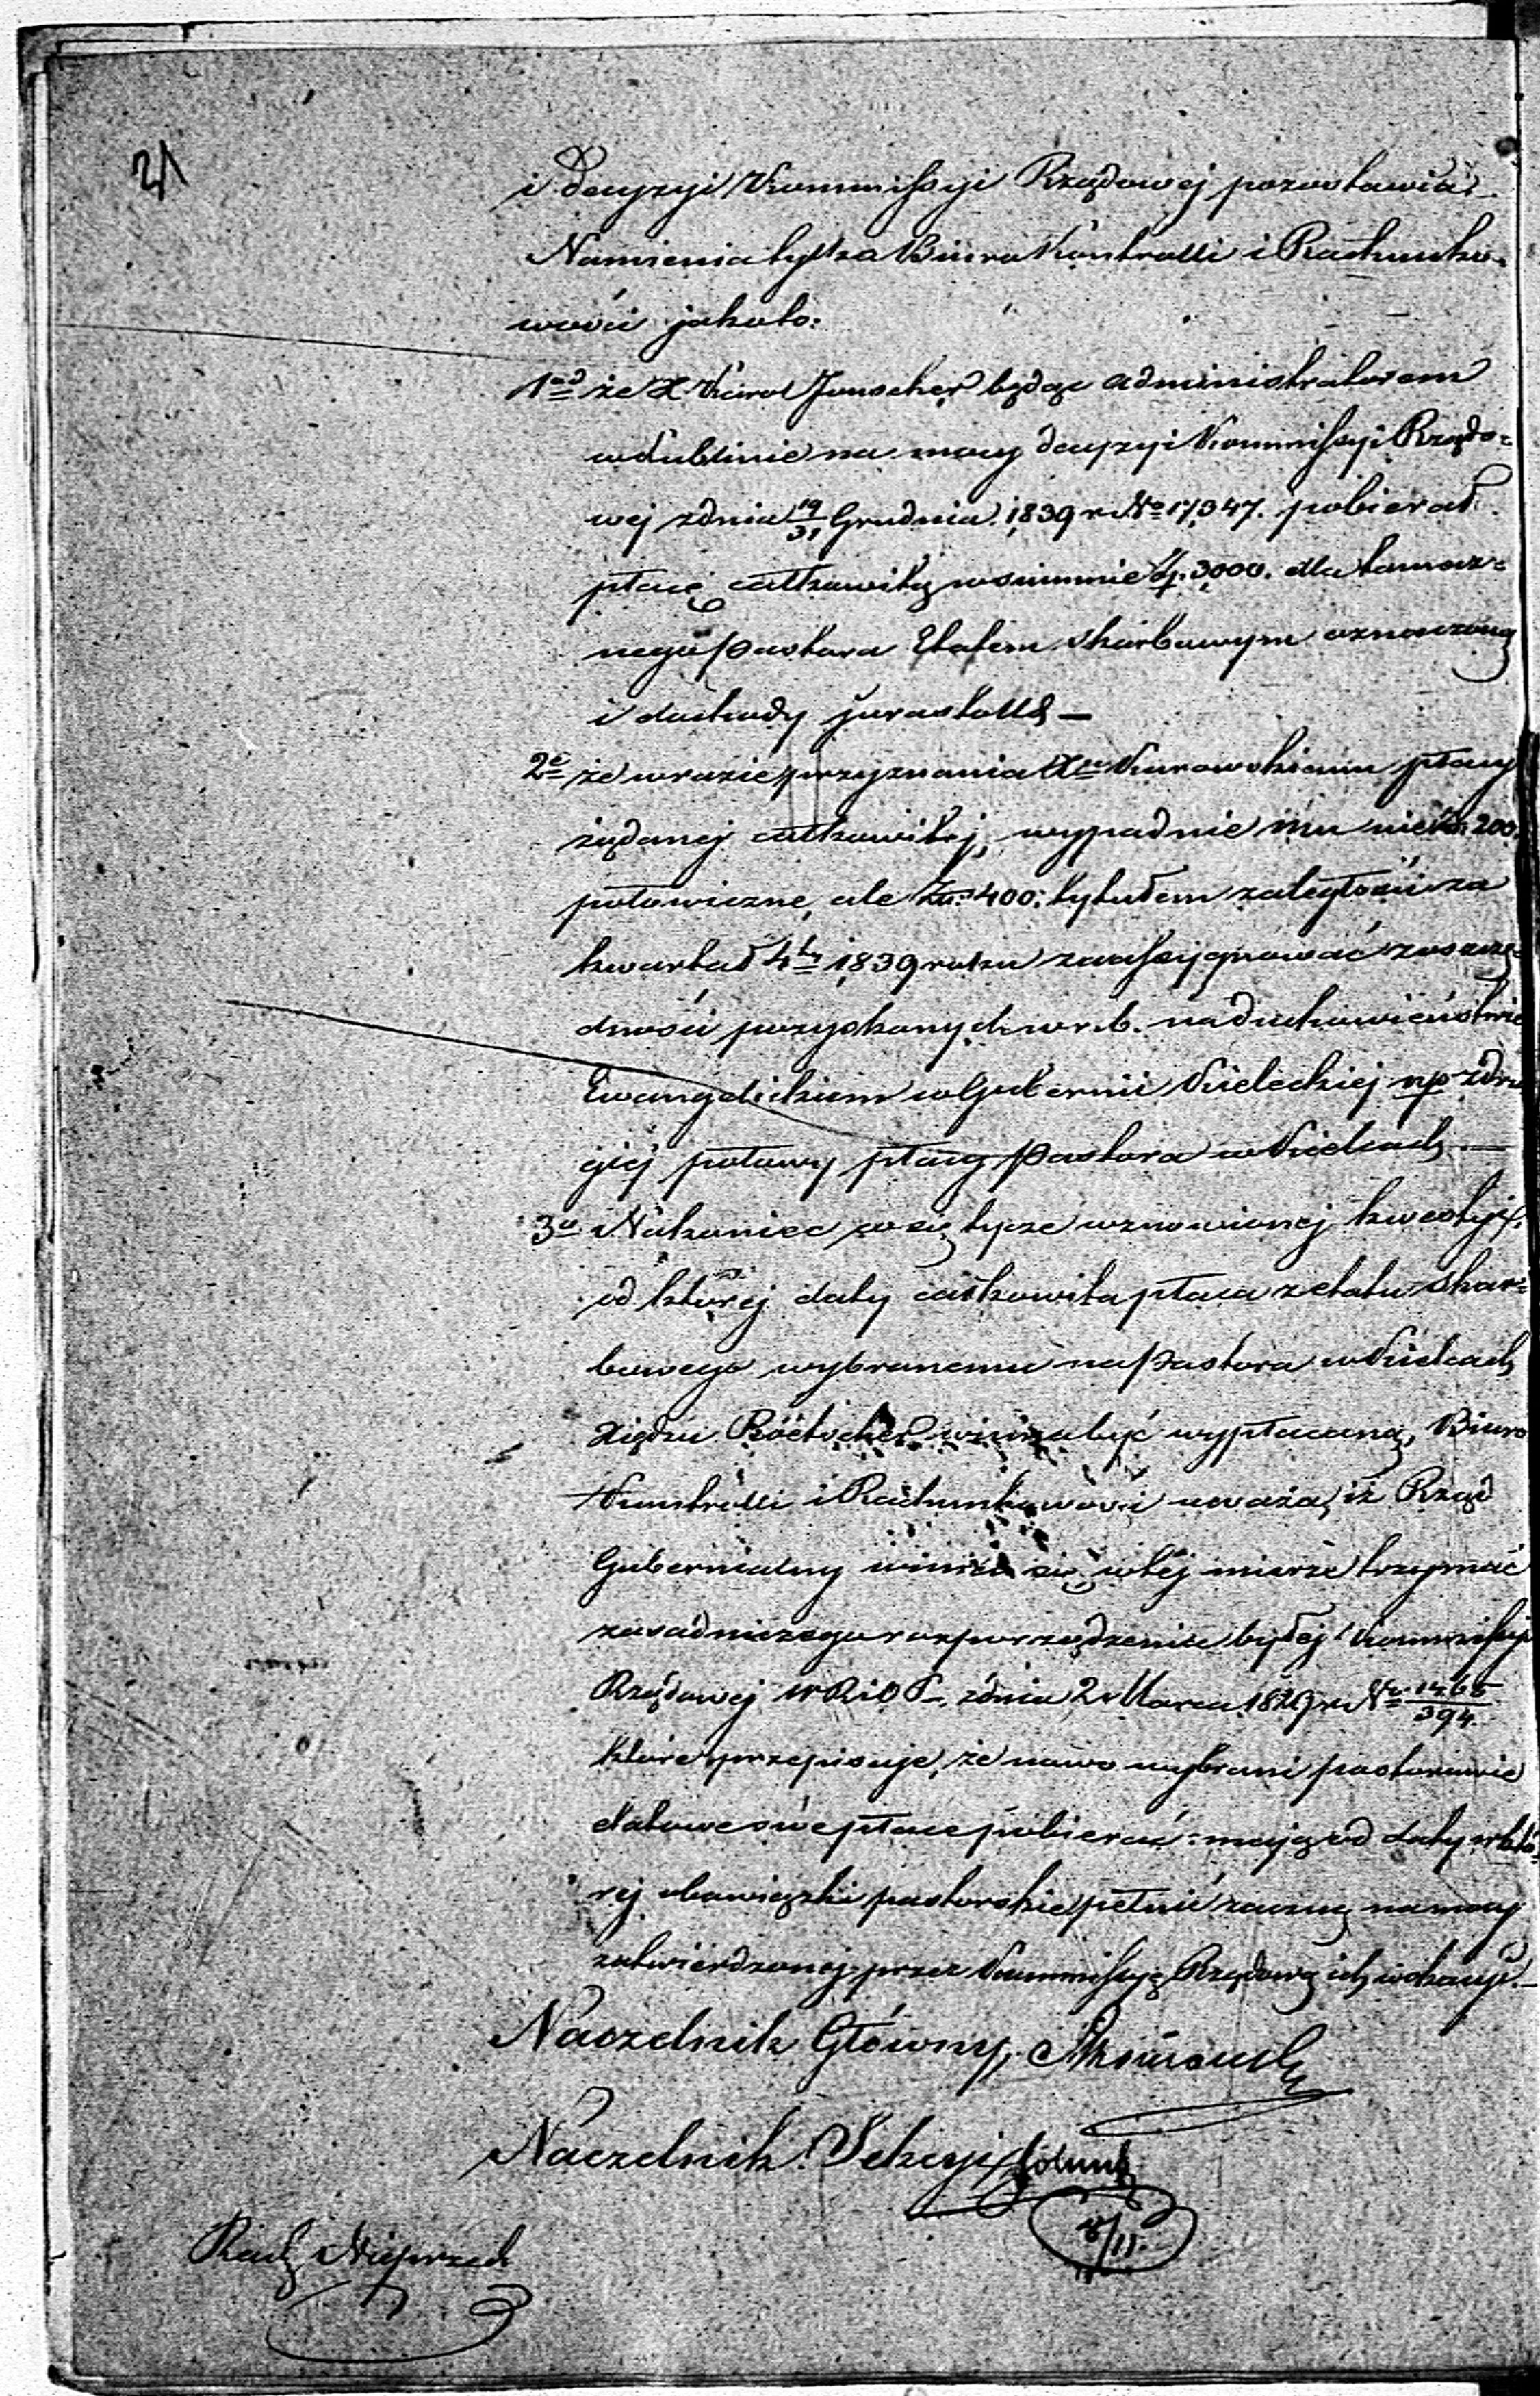 21
i decyzyi Kommissyi Rządowej pozostawia.
Namienia tylko Biuro Kontrolli i Rachunko-
wości jakoto:
1od że X. Karol Jonscher będąc administratorem
w Lublinie na mocy decyzyi Kommissyi Rządo-
wej z dnia 19/31 Grudnia 1839 r. No 17,047. pobierał
płacę całkowitą w summie zł. 3000. dla tamecz-
nego Pastora Etatem skarbowym oznaczoną
i dochody jura stollae —
2e że w razie przyznania Xu Kurowskiemu płacy
żądanej całkowitej, wypadnie mu nie 200.
połowiczne, ale 400: tytułem zaległości za
kwartał 4ty 1839 roku zaassygnować z oszczę-
dności pozyskanych w r. b. na duchowieństwie
Ewangelickiem w Gubernii Kieleckiej z dru-
giej połowy płacy Pastora w Kielcach —
3o Nakoniec co się tycze wznowionej kwestyi,
od której daty całkowita płaca z etatu skar-
bowego wybranemu na Pastora w Kielcach
Xiędzu winna być wypłacaną, Biuro
Kontrolli i Rachunkowości uważa, iż Rząd
Gubernialny winien się w tej mierze trzymać
zasadniczego rozporządzenia byłej Kommissyi
Rządowej W R i O P. z dnia 2 Marca 1829 r. No /394.
które przepisuje, że nowo wybrani pastorowie
etatowe swe płace pobierać mają od daty w któ-
rej obowiązki pastorskie pełnić zaczną na mocy
zatwierdzonej przez Kommissyą Rządową ich wokacyi. —
Naczelnik Główny
Naczelnik Sekcyi
8/11.